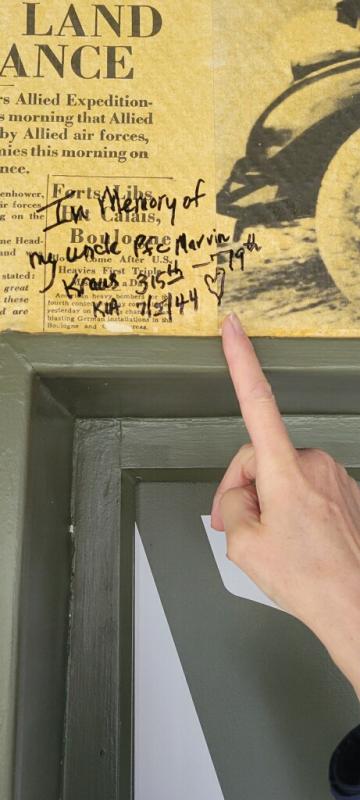 LAND
ANCE
rs Allied Expedition-
s morning that Allied
by Allied air forces,
mies this morning on
nce.
enhower,
air forces
g on the
me Head-
stated:
great
these
d are
Forts, Libs
Hit Calais,
Boulogne
Come After U.S.
Heavies First Triple
a Da
American heavy bombers
yesterday on
blasting German installations in the
Boulogne and Calais areas.
In Memory of
my uncle Pfc Marvin
Kraus 315th - 79th
KIA 7/5/44 ♡